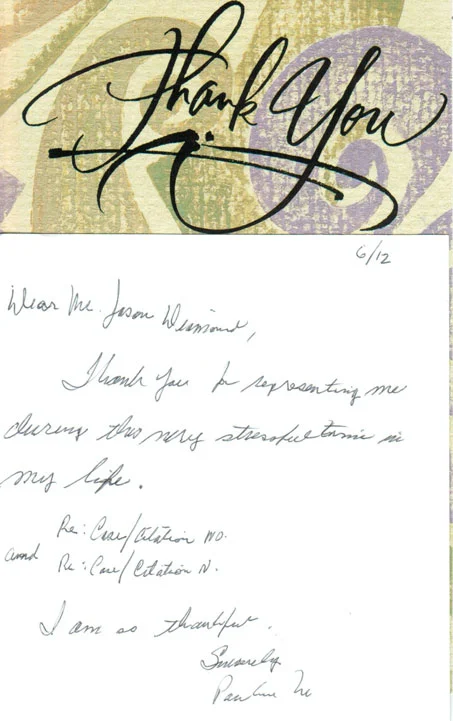 Thank You
6/12
Dear Mr. Jason Diamond,
Thank you for representing me
during this very stressful time in
my life.
Re: Case/Citation NO.
and Re: Case/Citation N.
I am so thankful.
Sincerely
Pauline